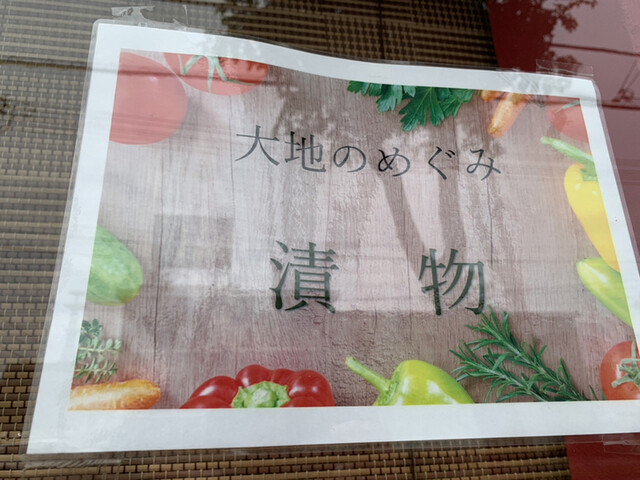 大地のめぐみ
漬　物